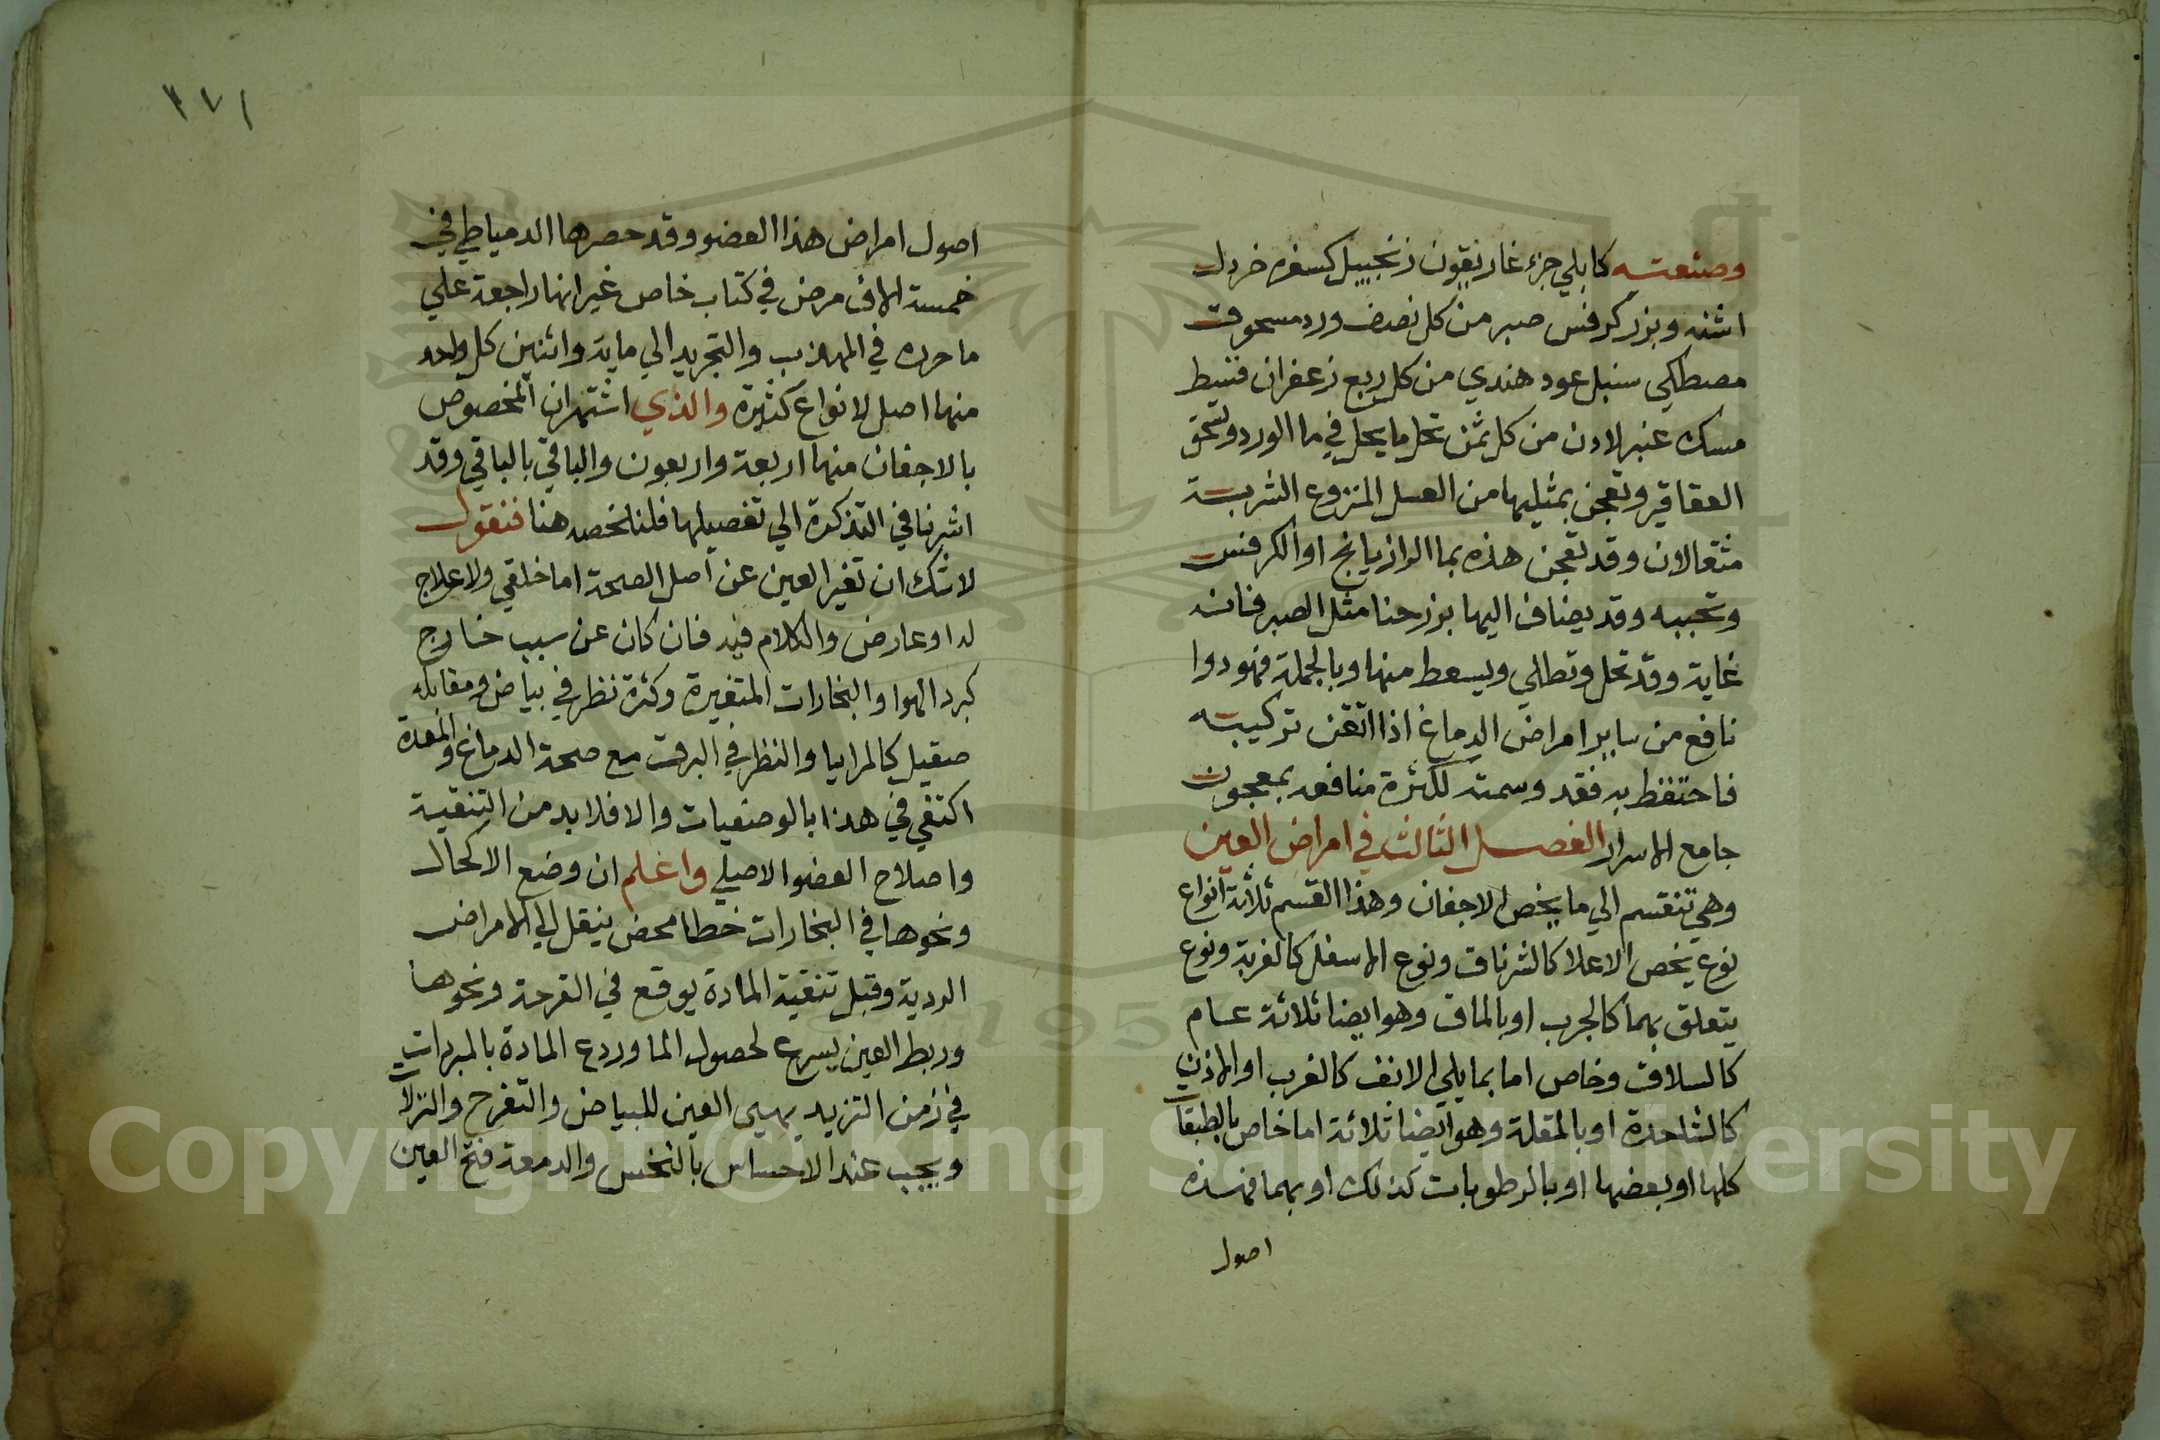 وصنعته كابلي جزء غاريقون زنجبيل كسفره خردل
اشنه وبزر كرفس صبر من كل نصف ورد مسحوق
مصطكي سنبل عود هندي من كل ربع زعفران قنيط
مسك عنبر لادن من كل ثمن تحل ما يحل في ما الورد وتسحق
العقاقير وتعجن بمثليها من العسل المنزوع الشربة
مثقالان وقد تعجن هذه بما الرازيانج او الكرفس
وتحببه وقد يضاف اليها بزر حنا مثل الصبر فانه
غاية وقد تحل وتطلي ويسعط منها وبالجملة فهو دوا
نافع من ساير امراض الدماغ اذا اتقن تركيبه
فاحتفظ به فقد وسمته لكثرة منافعه بمعجون
جامع الاسرار الفصل الثالث في امراض العين
وهي تنقسم الي ما يخص الاجفان وهذا القسم ثلاثة انواع
نوع يخص الاعلا كالشرناق ونوع الاسفل كالغربة ونوع
يتعلق بهما كالجرب او بالماق وهو ايضا ثلاثة عام
كالسلاق وخاص اما بما يلي الانف كالغرب او الاذن
كالشاحذة او بالمقلة وهو ايضا ثلاثة اما خاص بالطبقات
كلها او بعضها او بالرطوبات كذلك او بهما فهذه
اصول
٣٧١
اصول امراض هذا العضو وقد حصرها الدمياطي في
خمسة الاف مرض في كتاب خاص غير انها راجعة علي
ما حرره في المهذب والتجريد الي ماية واثنين كل واحد
منها اصل لانواع كثيرة والذي اشتهر ان المخصوص
بالاجفان منها اربعة واربعون والباقي بالباقي وقد
اشرنا في التذكرة الي تفصيلها فلنلخصه هنا فنقول
لا شك ان تغير العين عن اصل الصحة اما خلقي ولا علاج
له او عارض والكلام فيه فان كان عن سبب خارج
كبرد الهوا والبخارات المتغيرة وكثرة نظر في بياض ومقابلة
صقيل كالمرايا والنظر في البرق مع صحة الدماغ والمعدة
اكتفي في هذا بالوضعيات والا فلابد من التنقية
واصلاح العضو الاصيلي واعلم ان وضع الاكحال
ونحوها في البخارات خطا محض ينقل الي الامراض
الردية وقبل تنقية المادة يوقع في القرحة ونحوها
وربط العين يسرع لحصول الما وردع المادة بالمبردات
في زمن التزيد يهيى العين للبياض والتقرح والنزلات
ويجب عند الاحساس بالنخس والدمعة فتح العين
Copyright © King Saud University
195